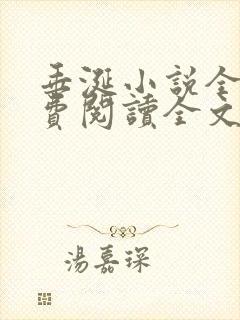 垂涎小說全
費閱讀全文
湯嘉琛